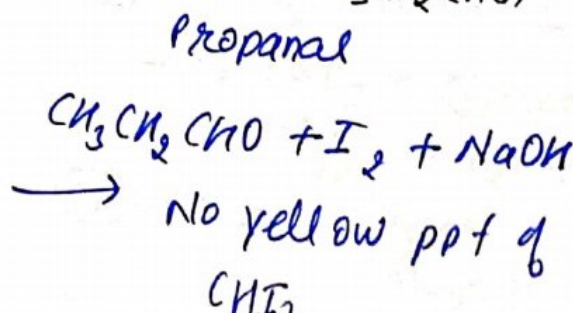 Propanal
CH₃CH₂CHO + I₂ + NaOH
→ No yellow ppt of
CHI₃